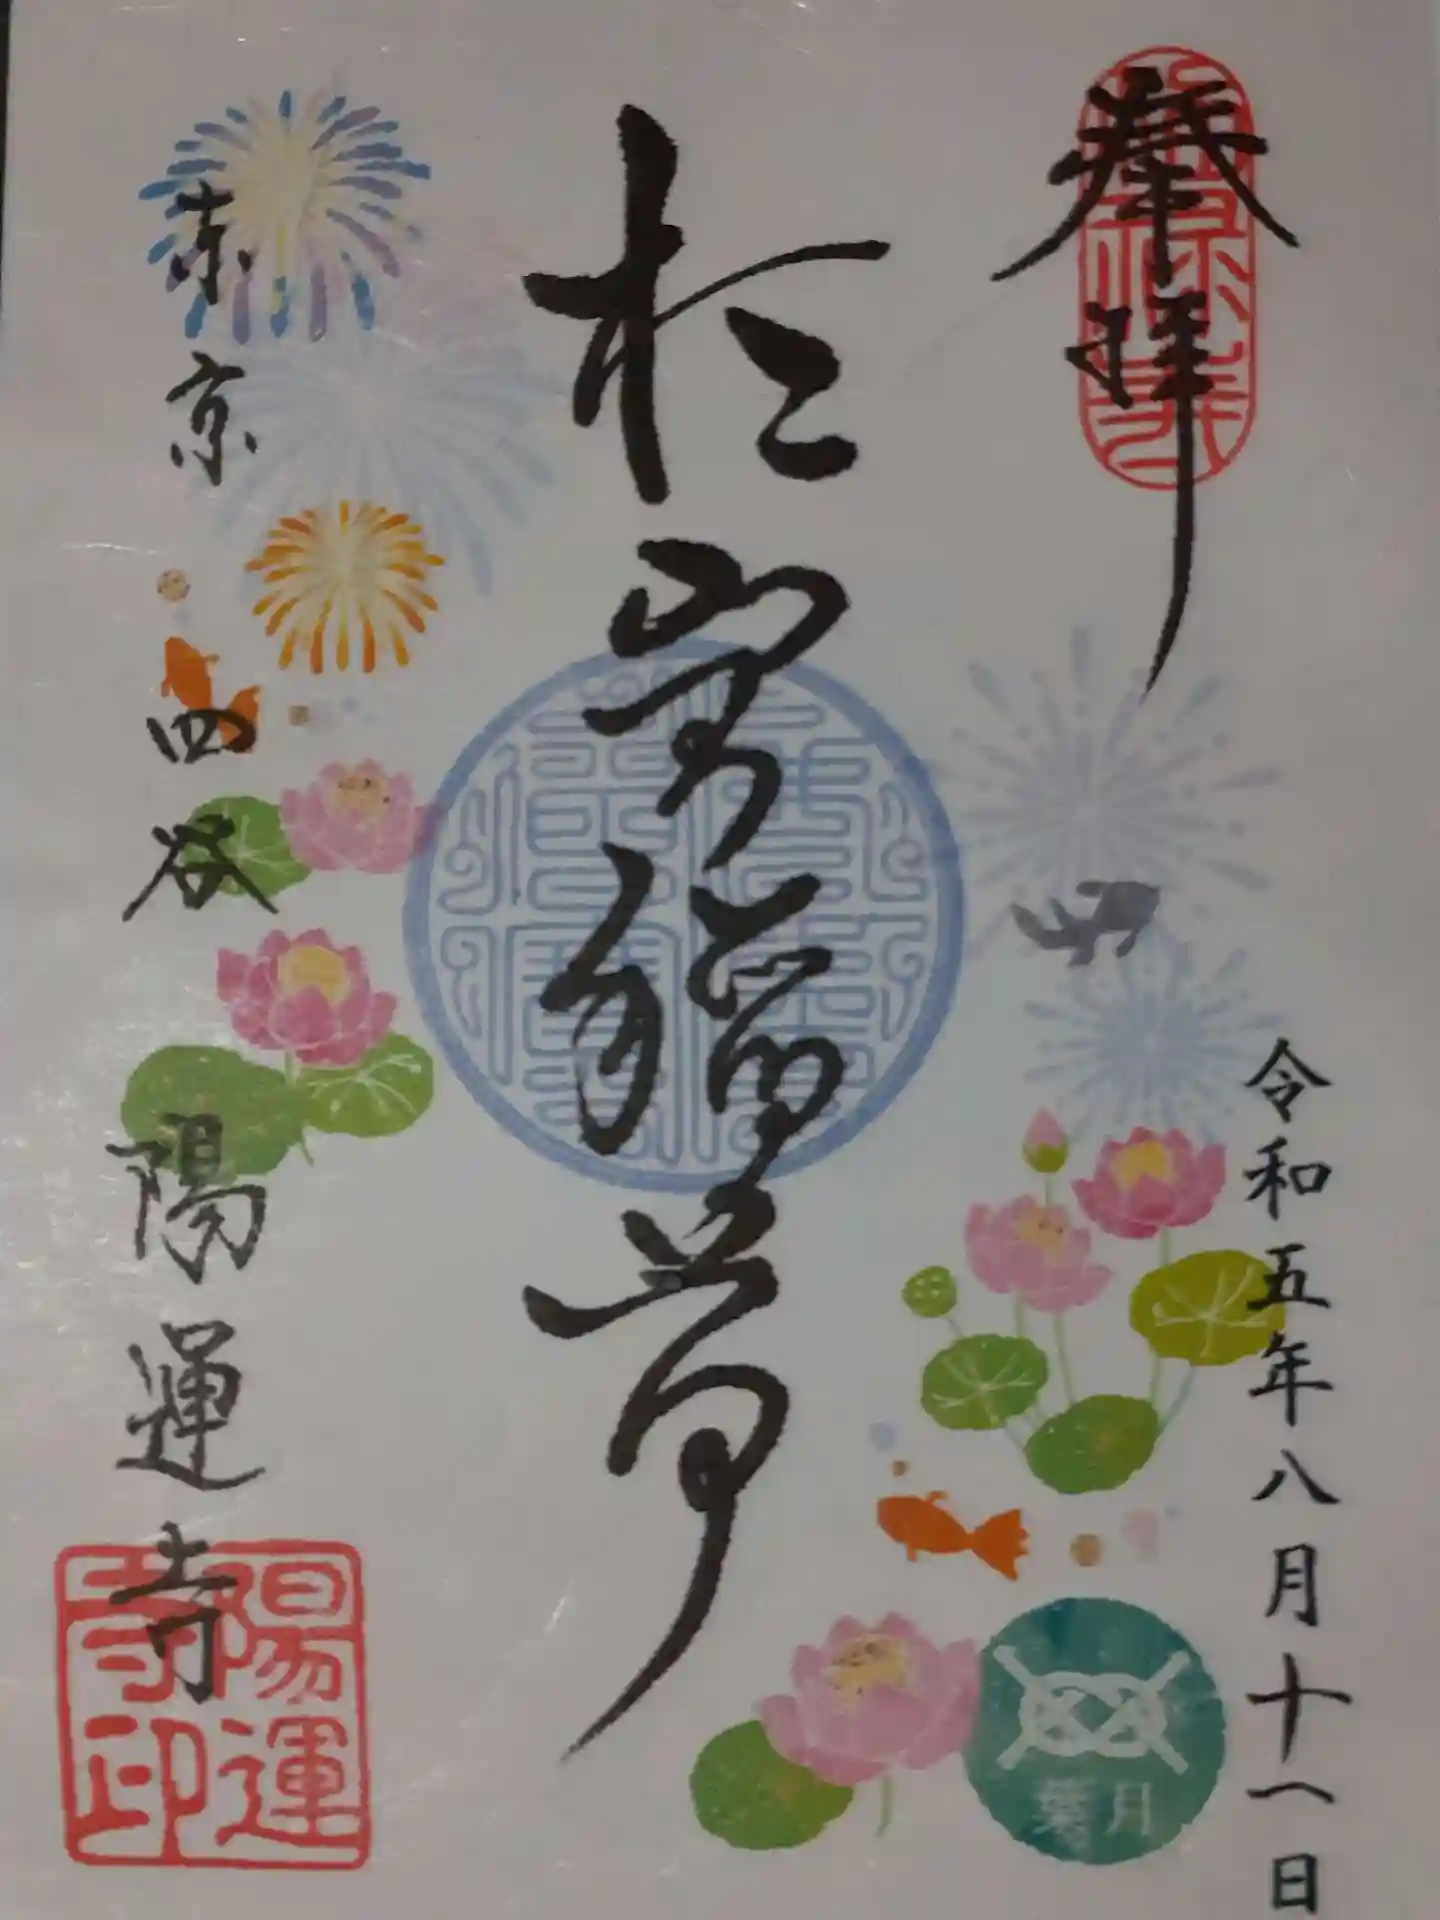 奉拝
令和五年八月十一日
葉月
於岩稲荷
東京 四谷 陽運寺
陽運寺印